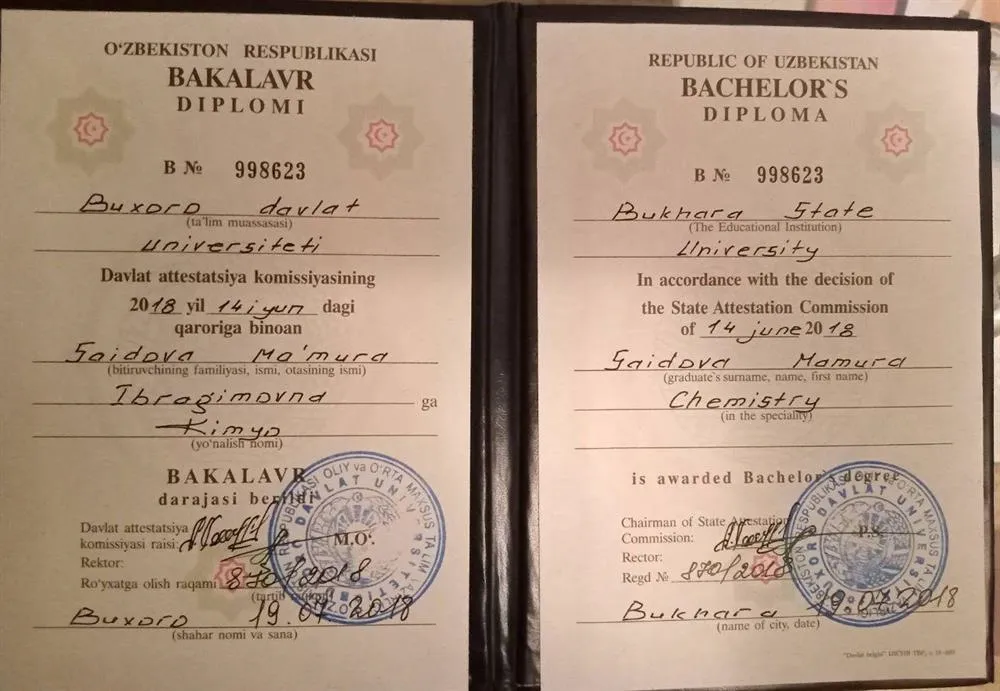 O‘ZBEKISTON RESPUBLIKASI
BAKALAVR
DIPLOMI
B № 998623
Buxoro davlat
(ta’lim muassasasi)
universiteti
Davlat attestatsiya komissiyasining
2018 yil 14 iyun dagi
qaroriga binoan
Saidova Ma'mura
(bitiruvchining familiyasi, ismi, otasining ismi)
Ibragimovna ga
Kimyo
(yo‘nalish nomi)
BAKALAVR
darajasi berildi
Davlat attestatsiya
komissiyasi raisi:
M.O‘.
Rektor:
Ro‘yxatga olish raqami 870/2018
(tartib raqami)
Buxoro 19.07.2018
(shahar nomi va sana)
REPUBLIC OF UZBEKISTAN
BACHELOR`S
DIPLOMA
B № 998623
Bukhara State
(The Educational Institution)
University
In accordance with the decision of
the State Attestation Commission
of 14 june 2018
Saidova Mamura
(graduate`s surname, name, first name)
Chemistry
(in the speciality)
is awarded Bachelor`s degree
Chairman of State Attestation
Commission:
P.S.
Rector:
Regd № 870/2018
Bukhara 19.07.2018
(name of city, date)
DAVLAT UNIVERSITETI
BUXORO DAVLAT UNIVERSITETI